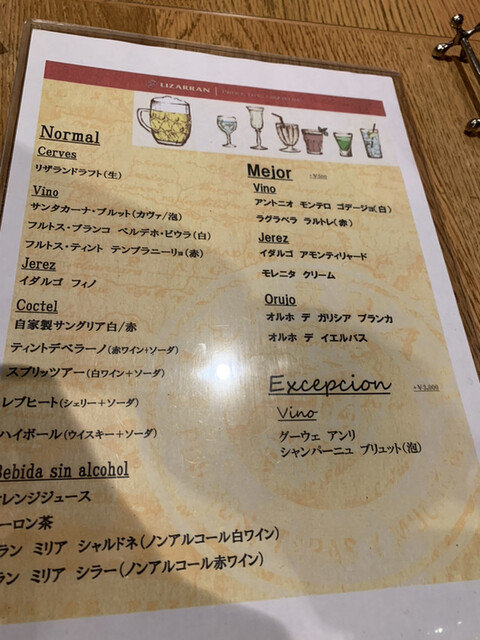 LIZARRAN
Normal
Cerves
リザランドラフト(生)
Vino
サンタカーナ・ブルット(カヴァ/泡)
フルトス・ブランコ ベルデホ・ビウラ(白)
フルトス・ティント テンプラニーリョ(赤)
Jerez
イダルゴ フィノ
Coctel
自家製サングリア白/赤
ティントデベラーノ(赤ワイン+ソーダ)
スプリッツアー(白ワイン+ソーダ)
レブヒート(シェリー+ソーダ)
ハイボール(ウイスキー+ソーダ)
Bebida sin alcohol
オレンジジュース
ーロン茶
ラン ミリア シャルドネ(ノンアルコール白ワイン)
ラン ミリア シラー(ノンアルコール赤ワイン)
Mejor
Vino
アントニオ モンテロ ゴデージョ(白)
ラグラベラ ラルトレ(赤)
Jerez
イダルゴ アモンティリャード
モレニタ クリーム
Orujo
オルホ デ ガリシア ブランカ
オルホ デ イエルバス
Excepcion +¥3,000
Vino
グーウェ アンリ
シャンパーニュ ブリュット(泡)